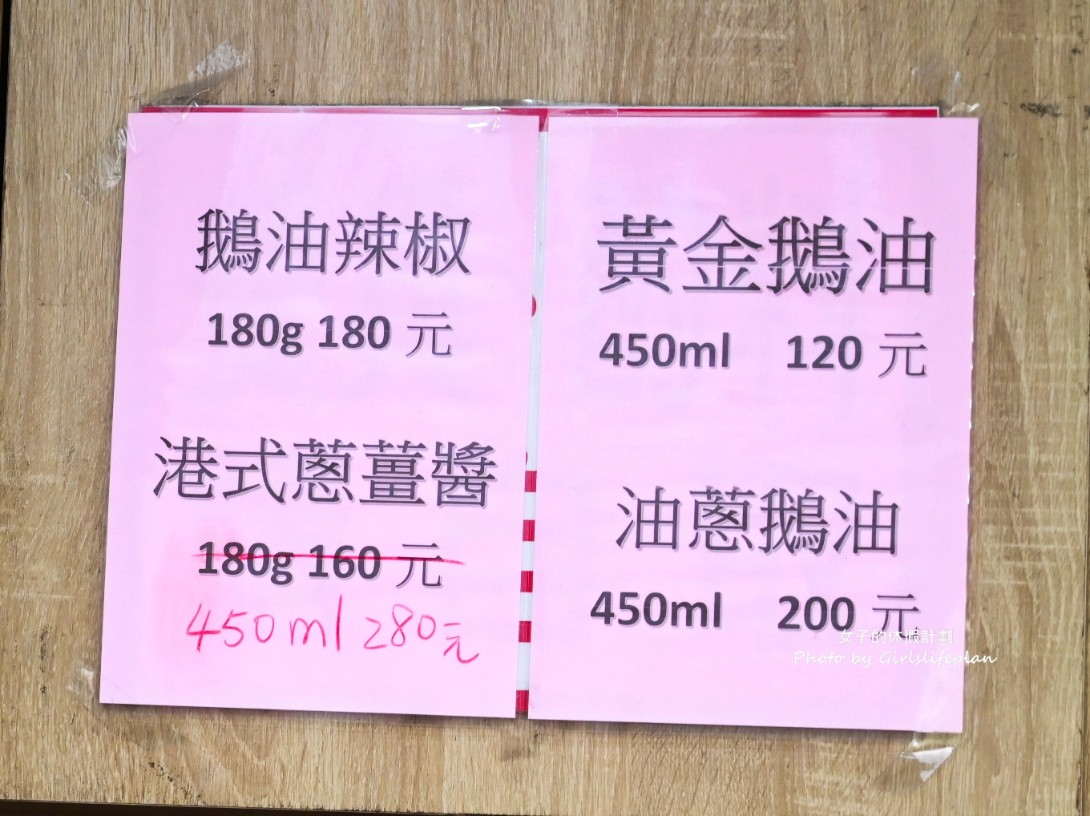 鵝油辣椒
180g 180 元
港式蔥薑醬
180g 160 元
450ml 280元
黃金鵝油
450ml 120 元
油蔥鵝油
450ml 200 元
女子的休假計劃
Photo by Girlslifeplan